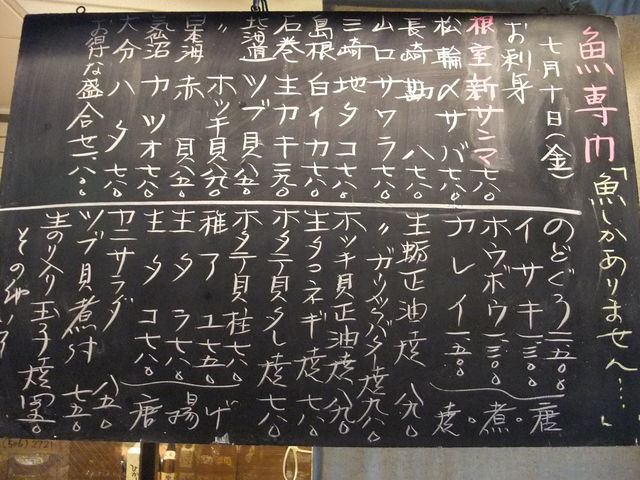 魚専門
「魚しかありません…」
七月十日(金)
お刺身
根室新サンマ七八〇
松輪〆サバ七八〇
長崎 八七〇
山口サワラ七八〇
三崎地タコ七八〇
島根白イカ七八〇
石巻生カキ三九〇
北海道ツブ貝八五〇
〃ホッチ貝八九〇
日本海赤貝八五〇
気仙沼カツオ七八〇
大分ハタ七八〇
お得な盛合せ一八〇〇
のどぐろ二五〇〇
イサキ一三〇〇
ホウボウ一三〇〇
カレイ一二五〇
唐。煮。焼。
生蛎正油焼 八九〇
〃ガーリックバター焼九八〇
ホッチ貝正油焼 八九〇
生タコネギ焼 七八〇
ホタテ貝タレ焼 七八〇
ホタテ貝柱七八〇
稚アユ七五〇
生タラ七八〇
生タコ七八〇
唐揚げ
カニサラダ 八五〇
ツブ貝煮付 七五〇
生のり入り玉子焼